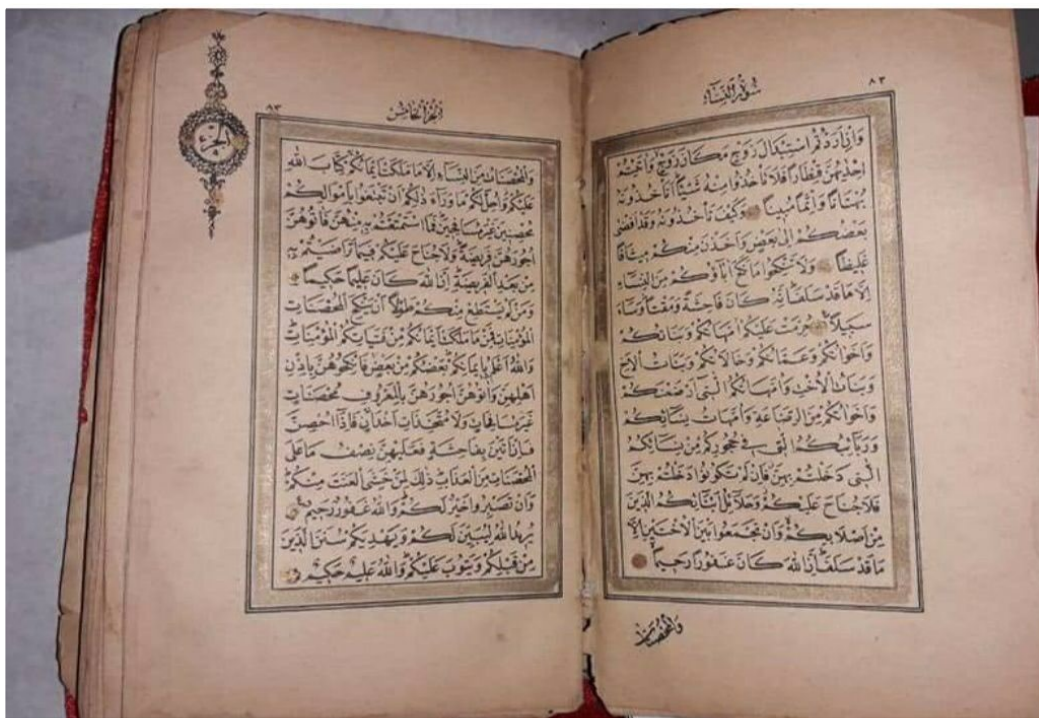 سورة النساء
٨٣
وَاِنْ اَرَدْتُمُ اسْتِبْدَالَ زَوْجٍ مَكَانَ زَوْجٍ وَاٰتَيْتُمْ
اِحْدٰيهُنَّ قِنْطَارًا فَلَا تَأْخُذُوا مِنْهُ شَيْئًا اَتَأْخُذُونَهُ
بُهْتَانًا وَاِثْمًا مُبِينًا وَكَيْفَ تَأْخُذُونَهُ وَقَدْ اَفْضٰى
بَعْضُكُمْ اِلٰى بَعْضٍ وَاَخَذْنَ مِنْكُمْ مِيثَاقًا
غَلِيظًا وَلَا تَنْكِحُوا مَا نَكَحَ اٰبَاؤُكُمْ مِنَ النِّسَاءِ
اِلَّا مَا قَدْ سَلَفَ اِنَّهُ كَانَ فَاحِشَةً وَمَقْتًا وَسَاءَ
سَبِيلًا حُرِّمَتْ عَلَيْكُمْ اُمَّهَاتُكُمْ وَبَنَاتُكُمْ
وَاَخَوَاتُكُمْ وَعَمَّاتُكُمْ وَخَالَاتُكُمْ وَبَنَاتُ الْاَخِ
وَبَنَاتُ الْاُخْتِ وَاُمَّهَاتُكُمُ الّٰتِى اَرْضَعْنَكُمْ
وَاَخَوَاتُكُمْ مِنَ الرَّضَاعَةِ وَاُمَّهَاتُ نِسَائِكُمْ
وَرَبَائِبُكُمُ الّٰتِى فِى حُجُورِكُمْ مِنْ نِسَائِكُمُ
الّٰتِى دَخَلْتُمْ بِهِنَّ فَاِنْ لَمْ تَكُونُوا دَخَلْتُمْ بِهِنَّ
فَلَا جُنَاحَ عَلَيْكُمْ وَحَلَائِلُ اَبْنَائِكُمُ الَّذِينَ
مِنْ اَصْلَابِكُمْ وَاَنْ تَجْمَعُوا بَيْنَ الْاُخْتَيْنِ اِلَّا
مَا قَدْ سَلَفَ اِنَّ اللّٰهَ كَانَ غَفُورًا رَحِيمًا
وَالْمُحْصَنَاتُ
الجزء الخامس
الجزء
وَالْمُحْصَنَاتُ مِنَ النِّسَاءِ اِلَّا مَا مَلَكَتْ اَيْمَانُكُمْ كِتَابَ اللّٰهِ
عَلَيْكُمْ وَاُحِلَّ لَكُمْ مَا وَرَاءَ ذٰلِكُمْ اَنْ تَبْتَغُوا بِاَمْوَالِكُمْ
مُحْصِنِينَ غَيْرَ مُسَافِحِينَ فَمَا اسْتَمْتَعْتُمْ بِهِ مِنْهُنَّ فَاٰتُوهُنَّ
اُجُورَهُنَّ فَرِيضَةً وَلَا جُنَاحَ عَلَيْكُمْ فِيمَا تَرَاضَيْتُمْ بِهِ
مِنْ بَعْدِ الْفَرِيضَةِ اِنَّ اللّٰهَ كَانَ عَلِيمًا حَكِيمًا
وَمَنْ لَمْ يَسْتَطِعْ مِنْكُمْ طَوْلًا اَنْ يَنْكِحَ الْمُحْصَنَاتِ
الْمُؤْمِنَاتِ فَمِنْ مَا مَلَكَتْ اَيْمَانُكُمْ مِنْ فَتَيَاتِكُمُ الْمُؤْمِنَاتِ
وَاللّٰهُ اَعْلَمُ بِاِيمَانِكُمْ بَعْضُكُمْ مِنْ بَعْضٍ فَانْكِحُوهُنَّ بِاِذْنِ
اَهْلِهِنَّ وَاٰتُوهُنَّ اُجُورَهُنَّ بِالْمَعْرُوفِ مُحْصَنَاتٍ
غَيْرَ مُسَافِحَاتٍ وَلَا مُتَّخِذَاتِ اَخْدَانٍ فَاِذَا اُحْصِنَّ
فَاِنْ اَتَيْنَ بِفَاحِشَةٍ فَعَلَيْهِنَّ نِصْفُ مَا عَلَى
الْمُحْصَنَاتِ مِنَ الْعَذَابِ ذٰلِكَ لِمَنْ خَشِىَ الْعَنَتَ مِنْكُمْ
وَاَنْ تَصْبِرُوا خَيْرٌ لَكُمْ وَاللّٰهُ غَفُورٌ رَحِيمٌ
يُرِيدُ اللّٰهُ لِيُبَيِّنَ لَكُمْ وَيَهْدِيَكُمْ سُنَنَ الَّذِينَ
مِنْ قَبْلِكُمْ وَيَتُوبَ عَلَيْكُمْ وَاللّٰهُ عَلِيمٌ حَكِيمٌ